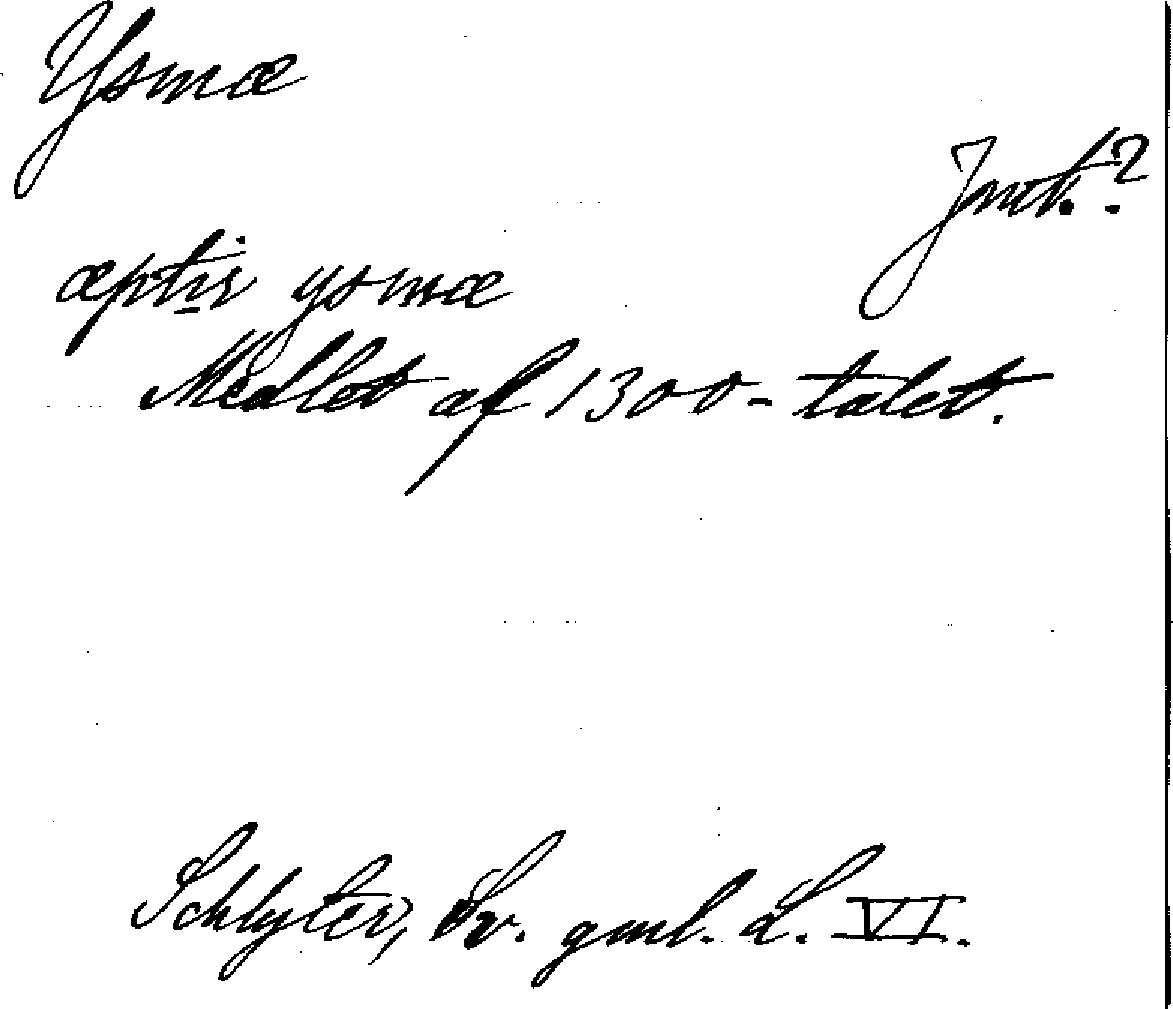 Ysmæ
Jmtk.?
æptir ysmæ
Medlet af 1300-talet.
Schlyter, Sv. gml. L. VI.